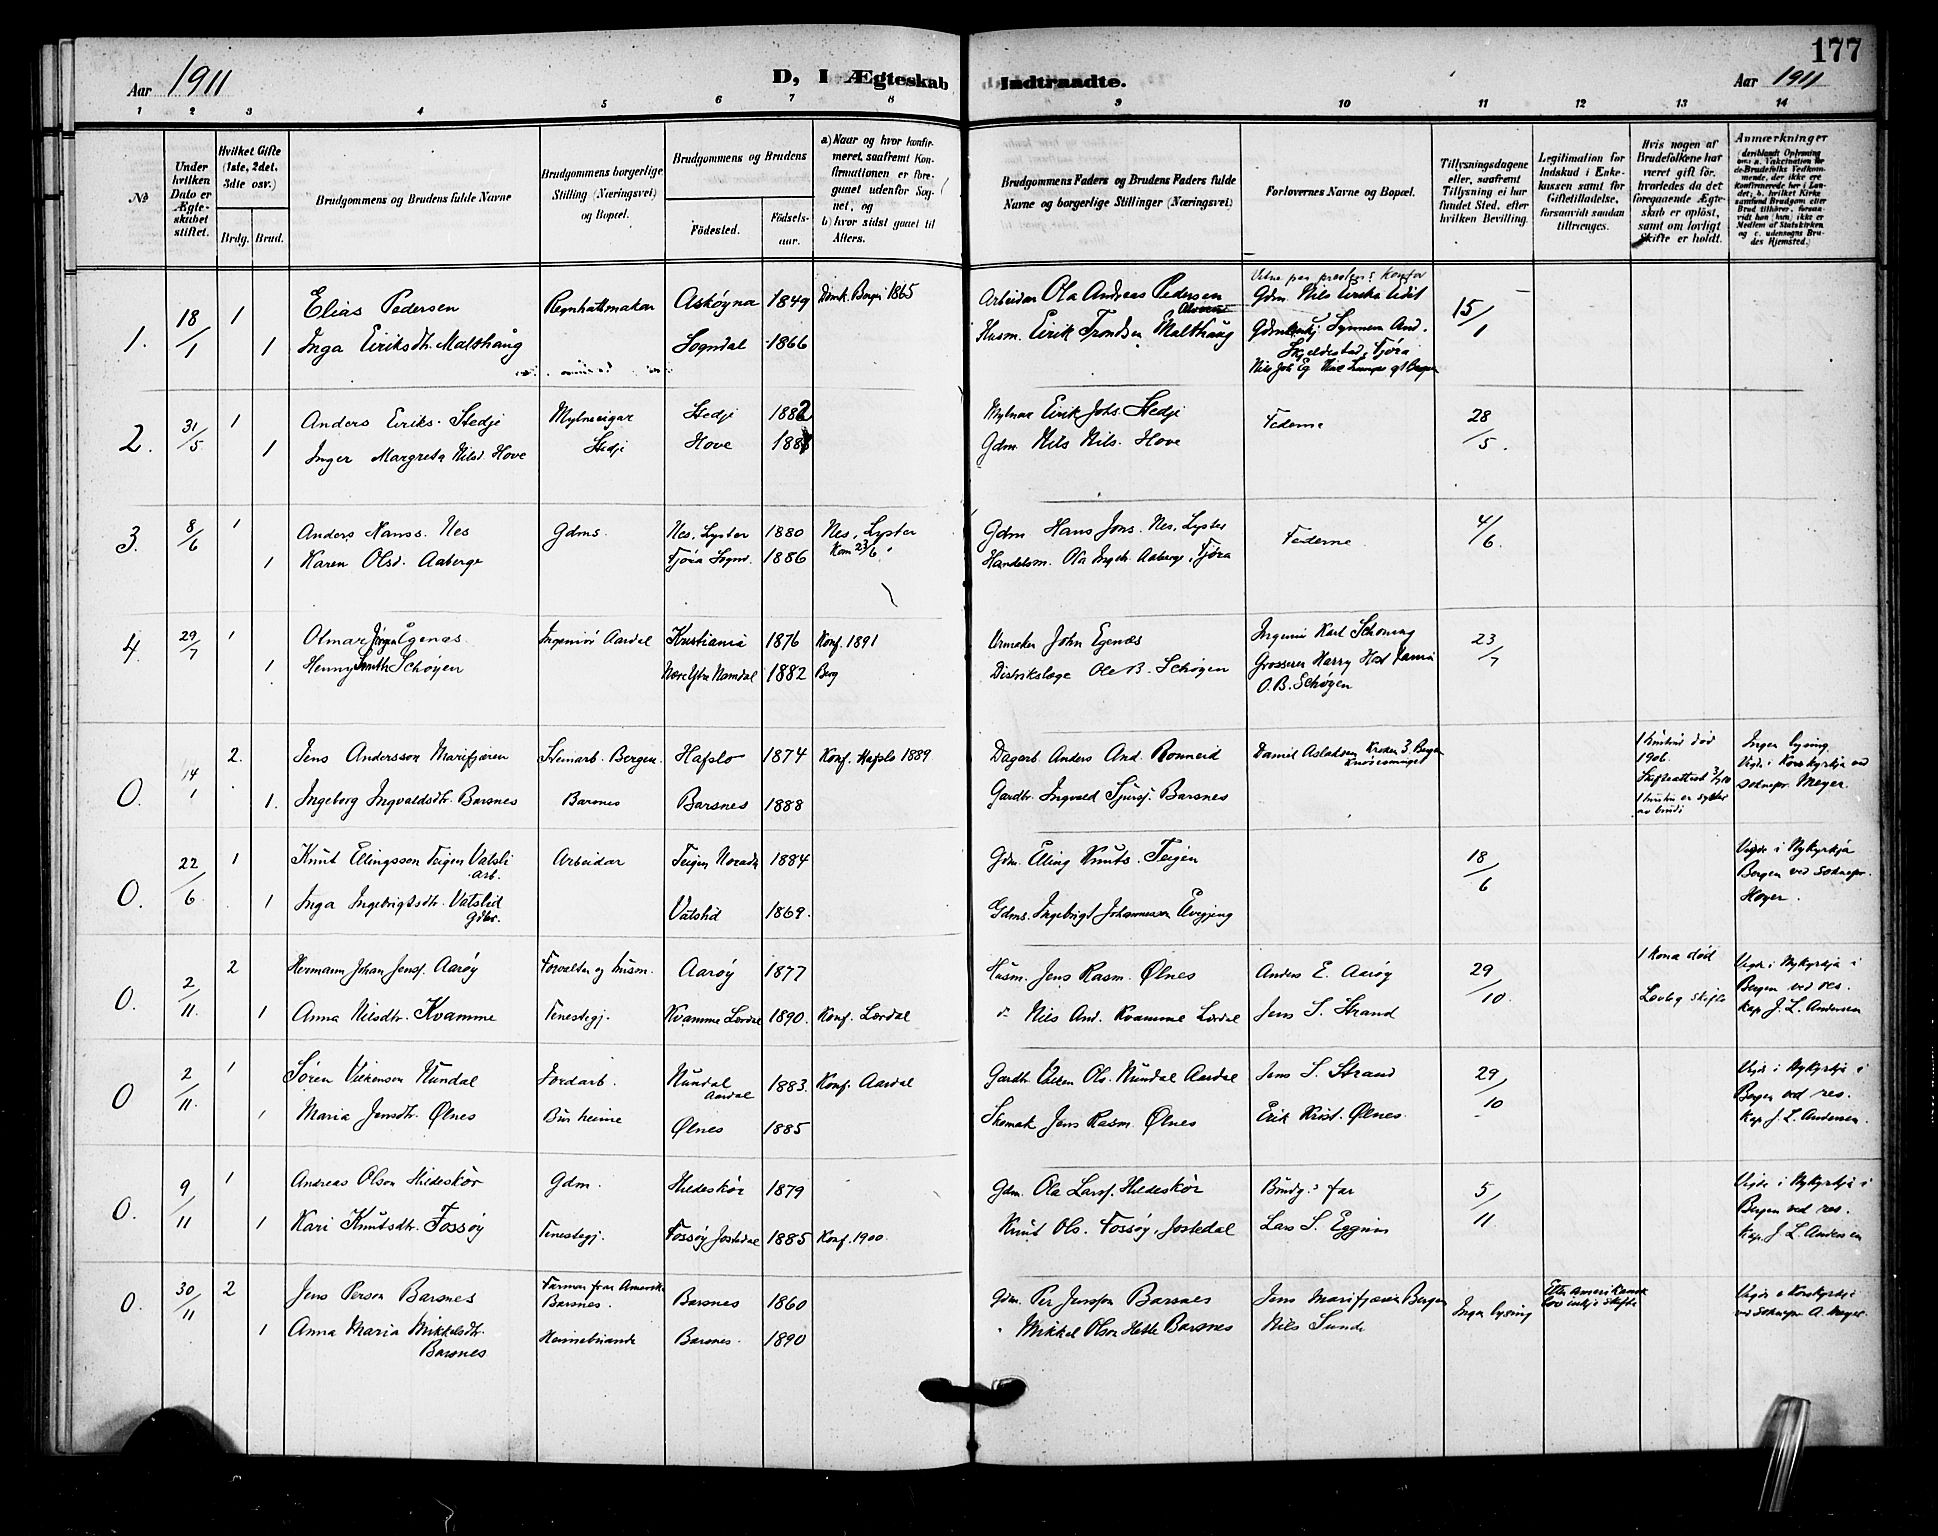 177
Aar 1911
D, I Ægteskab Indtraadte.
Aar 1911
1 2 3 4 5 6 7 8 9 10 11 12 13 14
No
Under hvilken Dato er Ægteskabet stiftet.
Hvilket Gifte (1ste, 2det, 3die osv.)
Brdg. Brud.
Brudgommens og Brudens fulde Navne
Brudgommens borgerlige Stilling (Næringsvei) og Bopæl.
Brudgommens og Brudens
Födested. Födselsaar.
a) Naar og hvor konfirmeret, saafremt Konfirmationen er foregaaet udenfor Sognet, og
b) hvor sidst gaaet til Alters.
Brudgommens Faders og Brudens Faders fulde Navne og borgerlige Stillinger (Næringsvei)
Forlovernes Navne og Bopæl.
Tillysningsdagene eller, saafremt Tillysning ei har fundet Sted, efter hvilken Bevilling.
Legitimation for Indskud i Enkekassen samt for Giftetilladelse, forsaavidt saadan tiltrænges.
Hvis nogen af Brudefolkene har været gift før, hvorledes da det foregaaende Ægteskab er opløst, samt om lovligt Skifte er holdt.
Anmærkninger
1. 18/1 1 Elias Pedersen Regnhattmakar Askøyna 1849 Domk. Bergen 1865 Arbeidar Ola Andreas Pedersen Gdm. Nils 15/1
1 Inga Eiriksdtr. Malthaug Sogndal 1866 Husm. Eirik Trondsen Malthaug
2. 31/5 1 Anders Eiriks. Stedje Mylneeigar Stedje 1882 Mylnar Eirik Johs. Stedje Federne 28/5
1 Inger Margreta Nilsd. Hove Stedje Hove 188 Gdm. Nils Nils. Hove
3. 8/6 1 Anders Hanss. Nes Gdms. Nes, Lyster 1880 Nes, Lyster Gdm Hans Jons. Nes, Lyster Federne 4/6
1 Karen Olsd. Aaberge Fjøra Sognd. 1886 Kom 23/6 Handelsm. Ola Ingebr. Aaberge, Fjøra
4. 29/7 1 Olmar Jørgen Egenæs Ingeniør Aardal Kristiania 1876 Konf. 1891 Urmaker John Egenæs Ingeniør Karl Schøning 23/7
1 Henny Smith Schøyen Namdal 1882 Berg Distriktslæge Ole B. Schøyen Grosserer Harry
O.B. Schøyen
0. 14/1 2. Jens Andersson Marifjæren Steinarb. Bergen. Hafslo 1874 Konf. Hafslo 1889 Dagarb. Anders And. Ronneid Daniel Aslaksen Kroken 3. Bergen
1. Ingeborg Ingvaldsdtr. Barsnes Barsnes Barsnes 1888 Gardbr. Ingvald Sjursf. Barsnes
1 hustru død 1906.
1 hustru er syster av brudi
Ingen lysing. Vigde i Korskyrkja ved soknepr. Meyer.
0. 22/6 1 Knut Ellingsson Teigen Vatsli arb. Arbeidar Teigen Norada 1884 Gdm. Elling Knuts. Teigen 18/6
1 Inga Ingebrigtsdtr. Vatslid Vatslid 1869. Gdms. Ingebrigt Johannesen
Vigde i Nykyrkja Bergen ved soknepr. Høyer.
0. 2/11. 2 Hermann Johan Jensf. Aarøy Forvalter og husm. Aarøy 1877 Husm. Jens Rasm. Ølnes Anders E. Aarøy 29/10. 1 kona død
1 Anna Nilsdtr. Kvamme Tenestegj. Kvamme Lærdal 1890. Konf. Lærdal " Nils And. Kvamme Lærdal Jens S. Strand Lovleg skifte
Vigde i Nykyrkja i Bergen ved res. kap. J. L. Andersen
0 2/11. 1 Søren Villemsen Nundal Jordarb. Nundal Aardal 1883. Konf. Aardal Gardbr. Ols. Nundal Aardal Jens S. Strand 29/10
1 Maria Jensdtr. Ølnes Bur heime Ølnes 1885 Skomak Jens Rasm. Ølnes Erik Krist. Ølnes.
Vigde i Nykyrkja i Bergen ved res. kap. J. L. Andersen.
0. 9/11 1 Andreas Olson Hildeskør Gdm. Hildeskør 1879 Gdm. Ola Larsf. Hildeskør Brudg.s far 5/11
1 Kari Knutsdtr. Fossøy Tenestegj. Fossøy Jostedal 1885 Konf. 1900. Knut Ols. Fossøy, Jostedal Lars S. Eggum
Vigde i Nykyrkja i Bergen ved res. kap. J. L. Andersen
0. 30/11 2 Jens Person Barsnes Farmar fraa Amerika Barsnes. Barsnes 1860 Gdm. Per Jensson Barsnes Jens Marifjæren Bergen Ingen lysing Etter Amerikansk lov inkje skifte
1 Anna Maria Mikkelsdtr. Barsnes Heimeverande Barsnes. 1890 " Mikkel Olson Hetle Barsnes Nils Sunde
Vigde i Korskyrkja ved soknepr. A. Meyer.